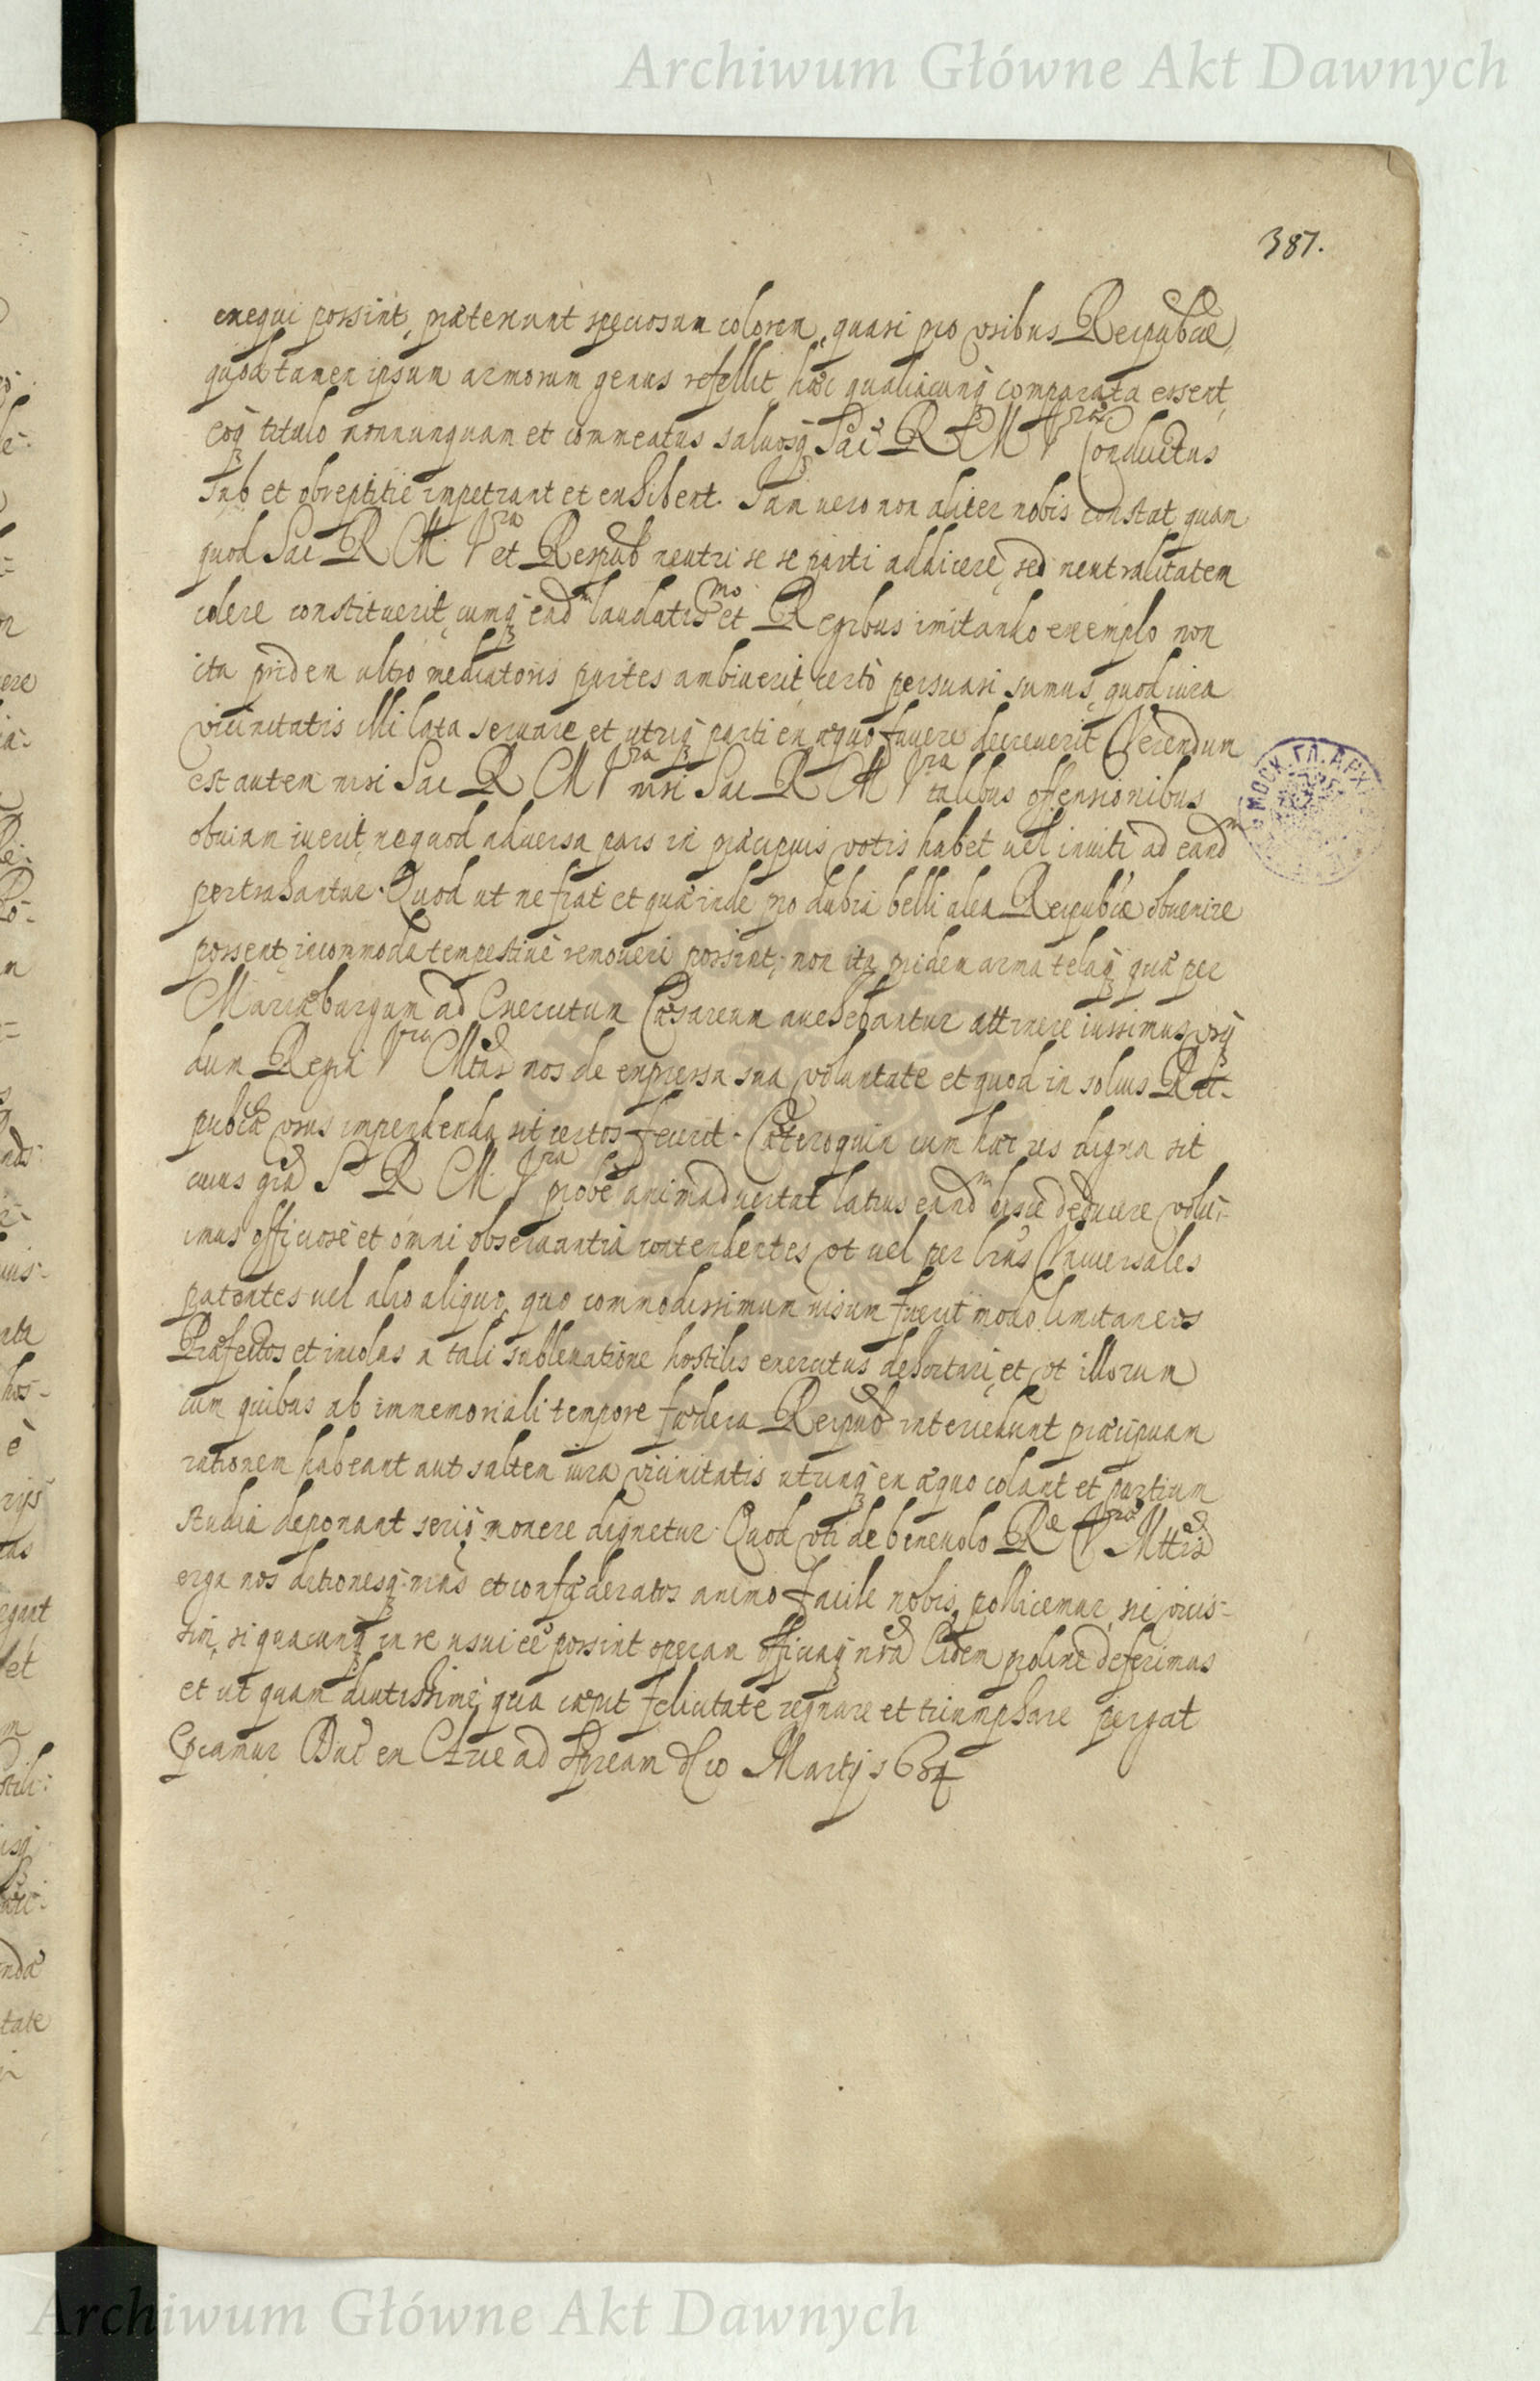 Archiwum Główne Akt Dawnych
387.
exequi possint, prætexunt speciosum colorem, quasi pro usibus Reipubcæ,
quod tamen ipsum armorum genus refellit, hæc qualiacunq comparata essent,
eoq titulo nonnunquam et commeatus salvosq Sac R M V Conductus
sub et obreptitie impetrant et exhibent. Jam vero non aliter nobis constat quam
quod Sac R M Vra et Respub neutri se se parti addicere, sed neutralitatem
colere constituerit, cumq eadm laudatismo et Regibus imitando exemplo non
ita pridem ultro mediatoris partes ambiverit, certò persuasi sumus, quod iura
vicinitatis illi lata servare et utriq parti ex æquo favere decreverit Verendum
est autem nisi Sac R M Vra nisi Sac R M Vra talibus offensionibus
obviam iverit, ne quod adversa pars in præcipuis votis habet vel inviti ad eandm
pertrahantur. Quod ut ne fiat et quæ inde pro dubia belli alea Reipubcæ obvenire
possent, incommoda tempestivè removeri possint, non ita pridem arma telaq quæ per
Mariæburgum ad Exercitum Cæsareum avehebantur attinere iussimus, usq
dum Regia Vra Mtas nos de expressa sua voluntate et quod in solius Rei-
pubcæ usus impendenda sit certos fecerit. Cæteroquin cum hæc res digna sit
cuius gra S R M Vra probè animadvertat latius eandm hisce deducere volu-
imus officiosè et omni observantiâ contendentes ut vel per lras Universales
patentes vel alio aliquo, quo commodissimum visum fuerit modo limitaneos
Præfectos et incolas a tali sublevatione hostilis exercitus dehortari, et ut illorum
cum quibus ab immemoriali tempore fœdera Reipub intercedunt præcipuam
rationem habeant aut saltem iura vicinitatis utrinq ex æquo colant et partium
studia deponant seriò monere dignetur. Quod uti de benevolo Ræ Vræ Mttis
erga nos detionesq nras et confæderatos animo facile nobis pollicemur, sic vicis-
sim, si quacunq in re usui ee possint operam officiaq nra Eidem prolixè deferimus
et ut quam diutissimè, qua cæpit felicitate regnare et triumphare pergat
Precamur Dat ex Arce ad Spream d 10 Martij 1634
МОСК. ГЛ. АРХ
Archiwum Główne Akt Dawnych